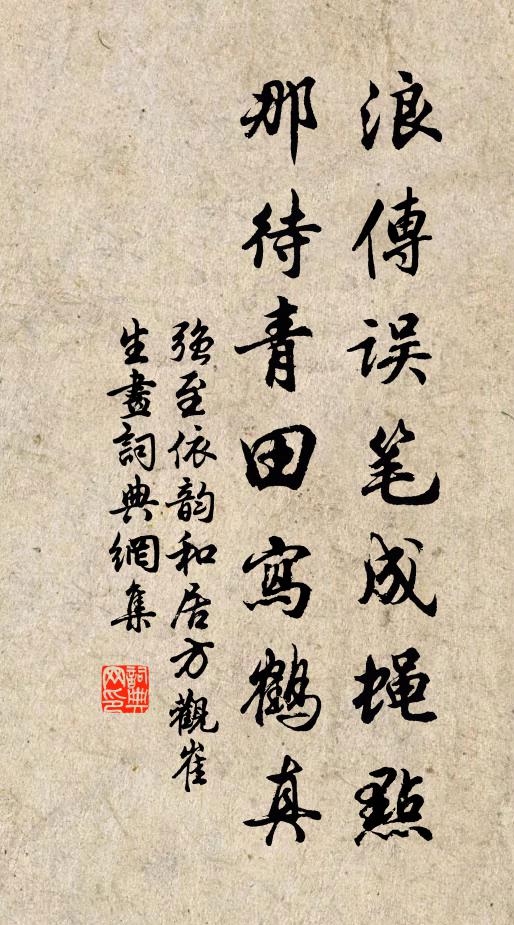 浪傳误笔成蝇點
那待青田寫鶴真
强至依韵和居方觀崔
生畫詞典網集
詞典网印